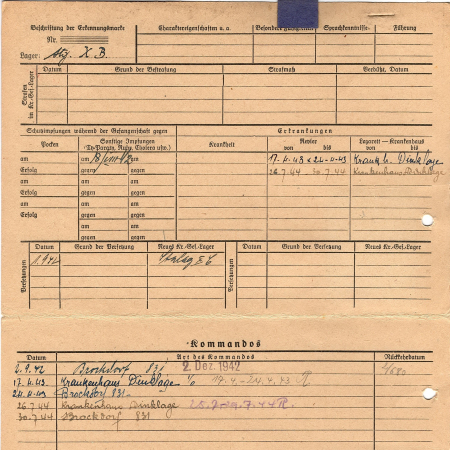 Beschriftung der Erkennungsmarke
Nr.
Lager: Stlg. X B.
Charaktereigenschaften u. a.
Besondere Fähigkeiten
Sprachkenntnisse
Führung
Strafen in Kr.-Gef.-Lager
Datum
Grund der Bestrafung
Strafmaß
Verbüßt, Datum
Schutzimpfungen während der Gefangenschaft gegen
Erkrankungen
Pocken
Sonstige Impfungen
(Ty-Paraty, Ruhr, Cholera usw.)
Krankheit
Revier
von bis
Lazarett – Krankenhaus
von bis
am
am
gegen
17.4.43 24.4.43 Krankh. Dinklage
Erfolg
am
gegen
26.7.44 30.7.44 Krankenhaus Dinklage
am
am
gegen
Erfolg
am
gegen
am
am
gegen
Erfolg
am
gegen
am
gegen
Versetzungen
Datum
Grund der Versetzung
Neues Kr.-Gef.-Lager
Versetzungen
Datum
Grund der Versetzung
Neues Kr.-Gef.-Lager
Kommandos
Datum
Art des Kommandos
Rückkehrdatum
2.9.42 Brockdorf 831 2. Dez. 1942
17.4.43 Krankenhaus Dinklage 17.4.-24.4.43 R
24.4.43 Brockdorf 831
26.7.44 Krankenhaus Dinklage
30.7.44 Brockdorf 831